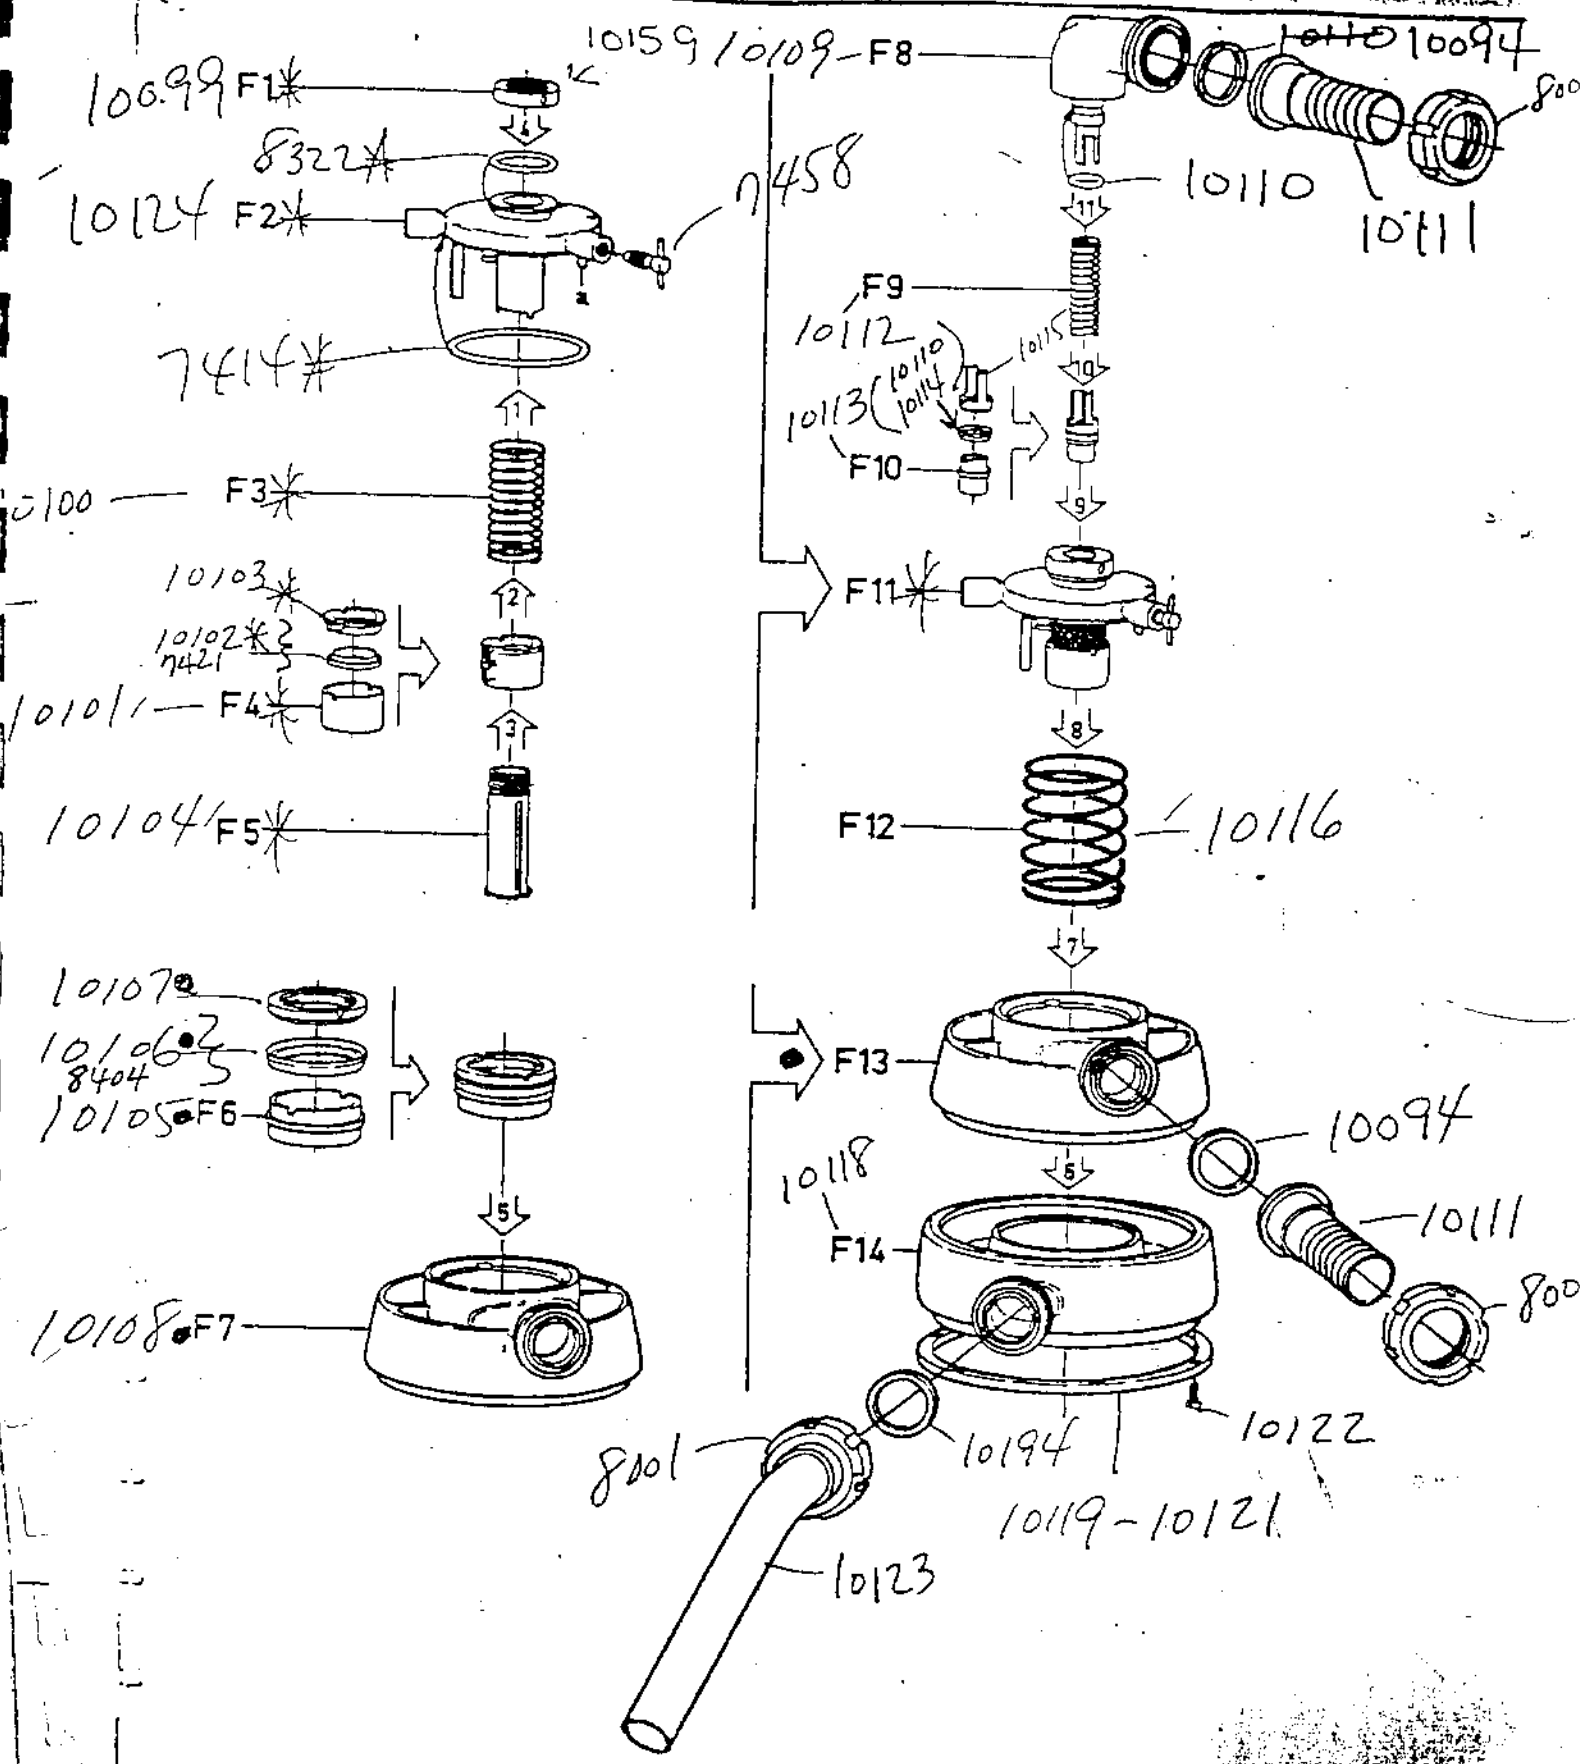 10099 F1*
4
8322*
10124 F2*
7458
7414*
1
0100 F3*
2
10103*
10102*
7421
10101 F4*
3
10104 F5*
10107
10106
8404
10105 F6
5
10108 F7
10159 10109 F8
10110 10094
800
10110
10111
11
F9
10112
10115
10
10110
10114
10113
F10
9
F11*
8
F12
10116
7
F13
10094
6
10118
F14
10111
800
8001
10194
10122
10119-10121
10123